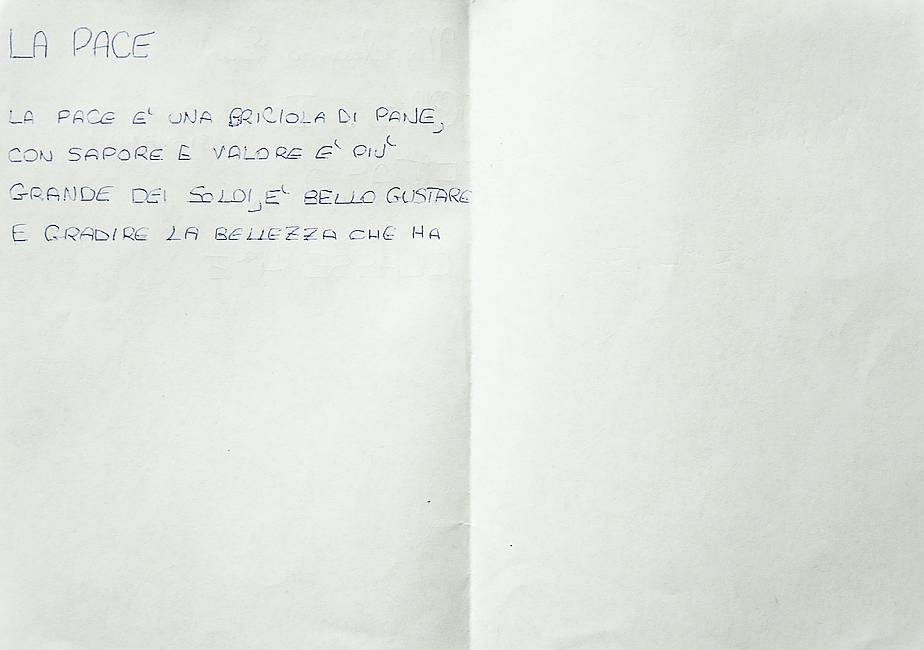 LA PACE
LA PACE E' UNA BRICIOLA DI PANE,
CON SAPORE E VALORE E' PIU'
GRANDE DEI SOLDI, E' BELLO GUSTARE
E GRADIRE LA BELLEZZA CHE HA